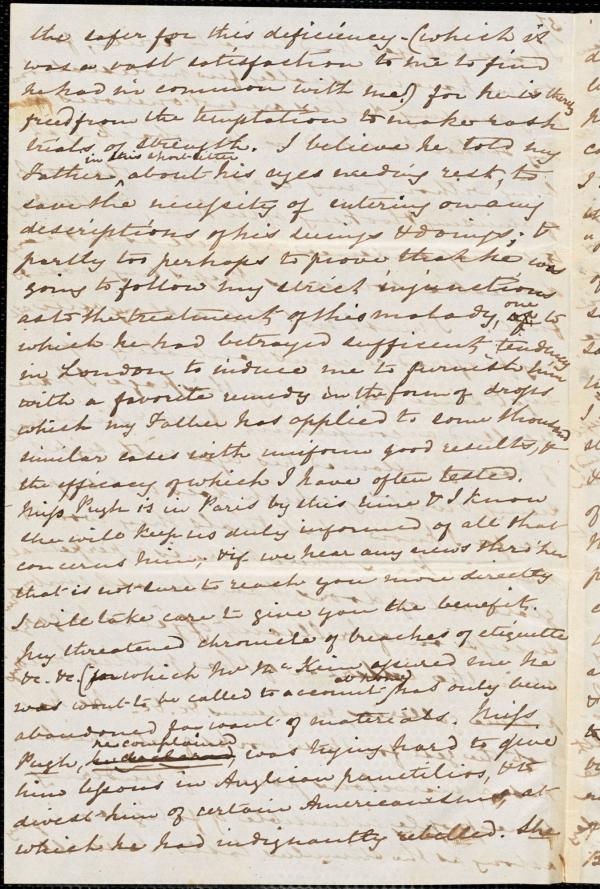 the safer for this deficiency - (which it
was a vast satisfaction to me to find
he had in common with me.) for he is thereby
freed from the temptation to make rash
trials of strength. I believe he told my
Father ^ in this short letter about his eyes needing rest, to
save the necessity of entering on any
descriptions of his seeings & doings; &
partly too perhaps to prove that he was
going to follow my strict injunctions
as to the treatment of this malady, one to
which he had betrayed sufficient tendency
in London to induce me to furnish him
with a favorite remedy in the form of drops
which my Father has applied to some thousand
similar cases with uniform good results, &
the efficacy of which I have often tested.
Miss Pugh is in Paris by this time & I know
she will keep us duly informed of all that
concerns him; & if we hear any news thro' her
that is not sure to reach you more directly
I will take care to give you the benefit.
My threatened chronicle of breaches of etiquette
&c. &c. (for which Mr. McKim assured me he
was wont to be called to account at home) has only been
abandoned for want of materials. Miss
Pugh, he complained, was trying hard to give
him lessons in Anglican punctilios, & to
divest him of certain Americanisms, at
which he had indignantly rebelled. She